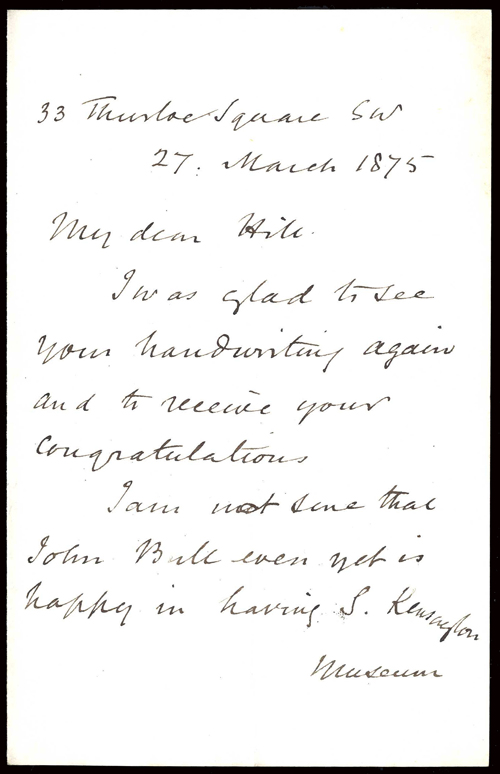 33 Thurloe Square SW
27. March 1875
My dear Hill.
I was glad to see
your handwriting again
and to receive your
congratulations
I am not sure that
John Bull even yet is
happy in having S. Kensington
Museum